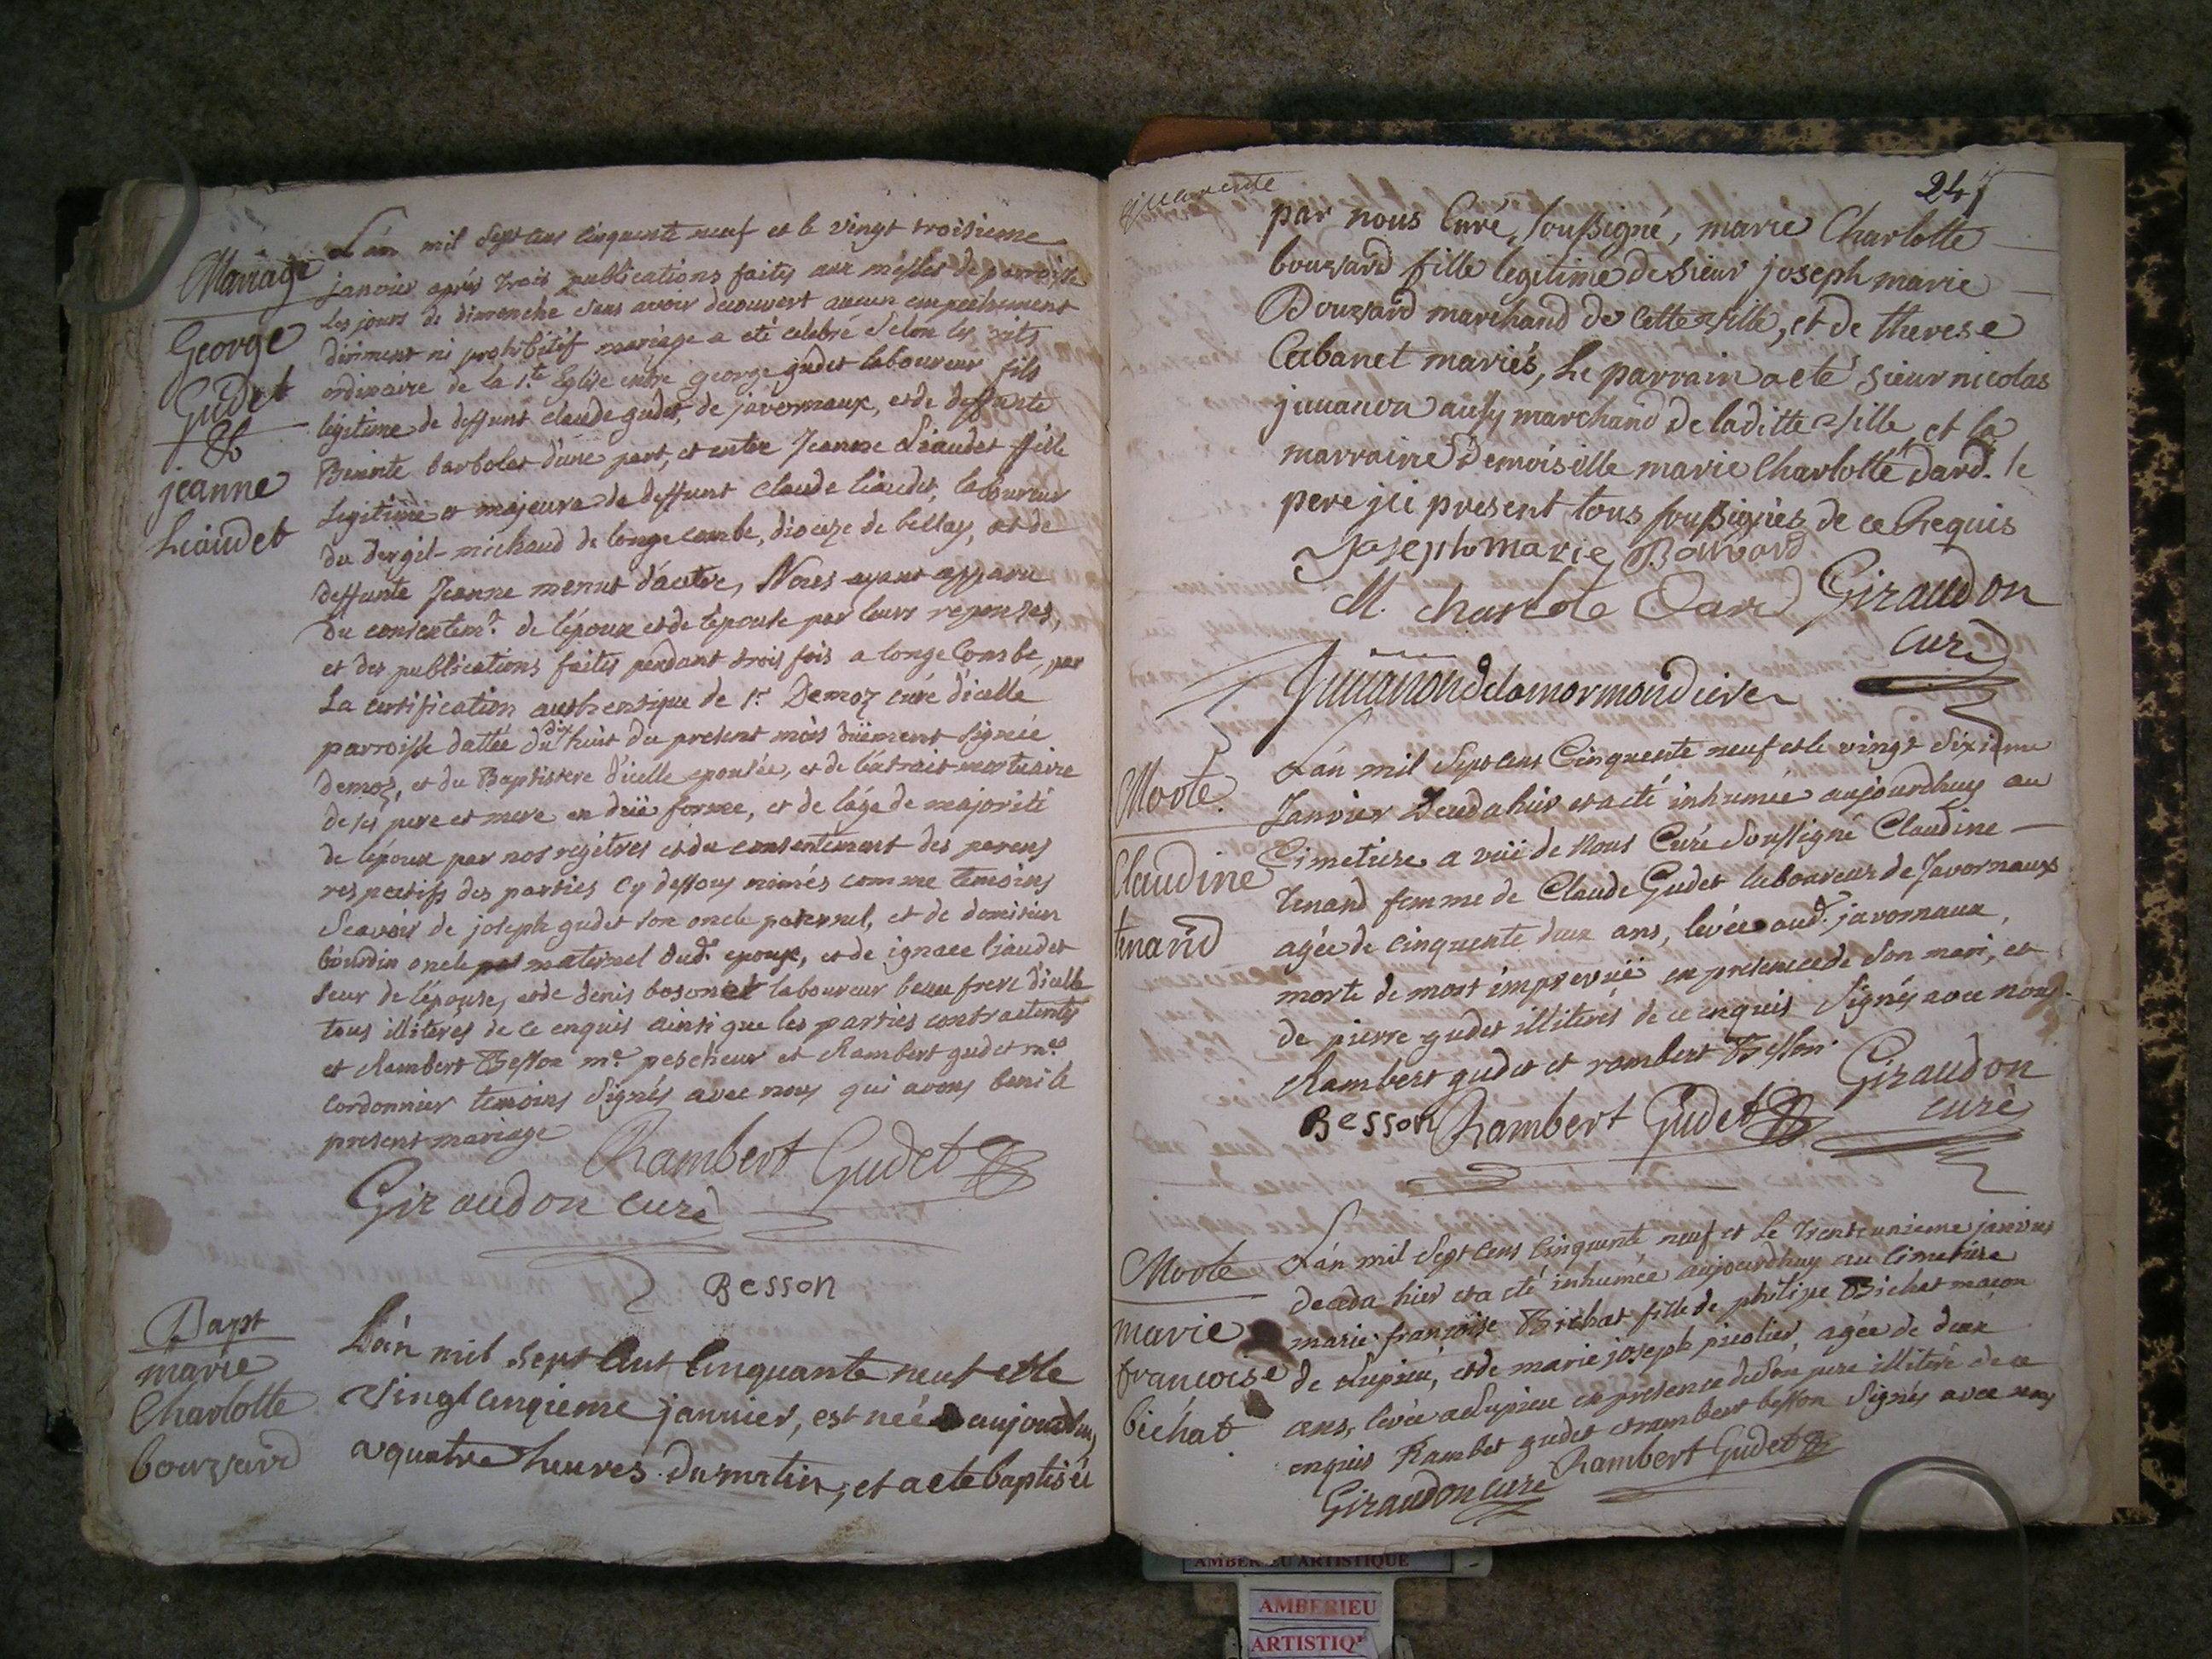 Mariage
George
Gudet
&
jeanne
Liaudet
L'an mil Sept cens cinquente neuf et le vingt troisieme
janvier aprés trois publications faites aux messes de parroisse
les jours de dimenche sans avoir decouvert aucun empechement
diriment ni prohibitif mariage a eté celebré Selon les rits
ordinaire de la Ste Eglise entre george gudet laboureur fils
legitime de deffunt claude gudet, de javornaux, et de deffunte
Benoite barbolat d'une part, et entre Jeanne Liaudet fille
Legitime et majeure de deffunt Claude liaudet, laboureur
du michaud de longecombe, dioceze de bellay, et de
deffunte Jeanne menut d'autre, Nous ayant apparu
du consentemt. de l'époux et de l'épouse par leurs reponses,
et des publications faites pendant trois fois a longeCombe, par
La certification authentique de Sr. Demoz curé d'icelle
parroisse dattée du dix huit du present mois düement Signée
demoz, et du Baptistere d'icelle epousée, et de l'extrait mortuaire
de ses pere et mere en düe forme, et de l'age de majorité
de l'époux par nos régitres et du consentement des parens
respectifs des parties cy dessous només comme temoins
Scavoir de joseph gudet son oncle paternel, et de domitien
bourdin oncle maternel dudt. epoux, et de ignace liaudet
seur de l'épouse, et de denis bosonet laboureur beau frere d'icelle
tous illiterés de ce enquis ainsi que les parties contractentes
et Rambert Besson me. pescheur et Rambert gudet me.
cordonnier temoins Signés avec nous qui avons beni le
present mariage
Rambert Gudet
Giraudon curé
Besson
Bapt
marie
Charlotte
bouvard
L'an mil sept Cent Cinquante neuf et le
vingt cinqieme janvier, est née aujourdhuy
a quatre heures du matin, et a eté baptisée
247
par nous Curé, soussigné, marie Charlotte
bouvard fille legitime de Sieur joseph marie
Bouvard marchand de cette ville, et de therese
Cabanet mariés, Le parrain a eté sieur nicolas
aussy marchand de laditte ville, et la
marraine Demoiselle marie Charlotte dard. le
pere ici present tous soussignés de ce Requis
Joseph marie Bouvard
M. charlote Dard Giraudon
curé
Morte
Claudine
tenand
L'an mil Sept cens Cinquente neuf et le vingt Sixieme
Janvier Deceda hier et a eté inhumée aujourdhuy au
Cimetiere a vüe de nous Curé Soussigné Claudine
Tenand femme de Claude Gudet laboureur de Javornaux
agée de cinquente deux ans, levée audt. javornaux,
morte de mort imprevüe en presence de Son mari, et
de pierre gudet illiterés de ce enquis Signés avec nous
Rambert gudet et rambert Besson.
Giraudon
curé
Besson Rambert Gudet
Morte
marie
francoise
bichat
L'an mil Sept Cens Cinquente neuf et Le trente unieme janvier
deceda hier et a eté inhumée aujourdhuy au Cimetiere
marie françoise Bichat fille de philipe Bichat maçon
de Lupieu, et de marie joseph picolier, agée de deux
ans, levée a Lupieu en presence de Son pere illiteré de ce
enquis Rambet gudet et rambert besson Signés avec nous
Giraudon curé Rambert Gudet
AMBERIEU ARTISTIQUE
AMBERIEU
ARTISTIQ